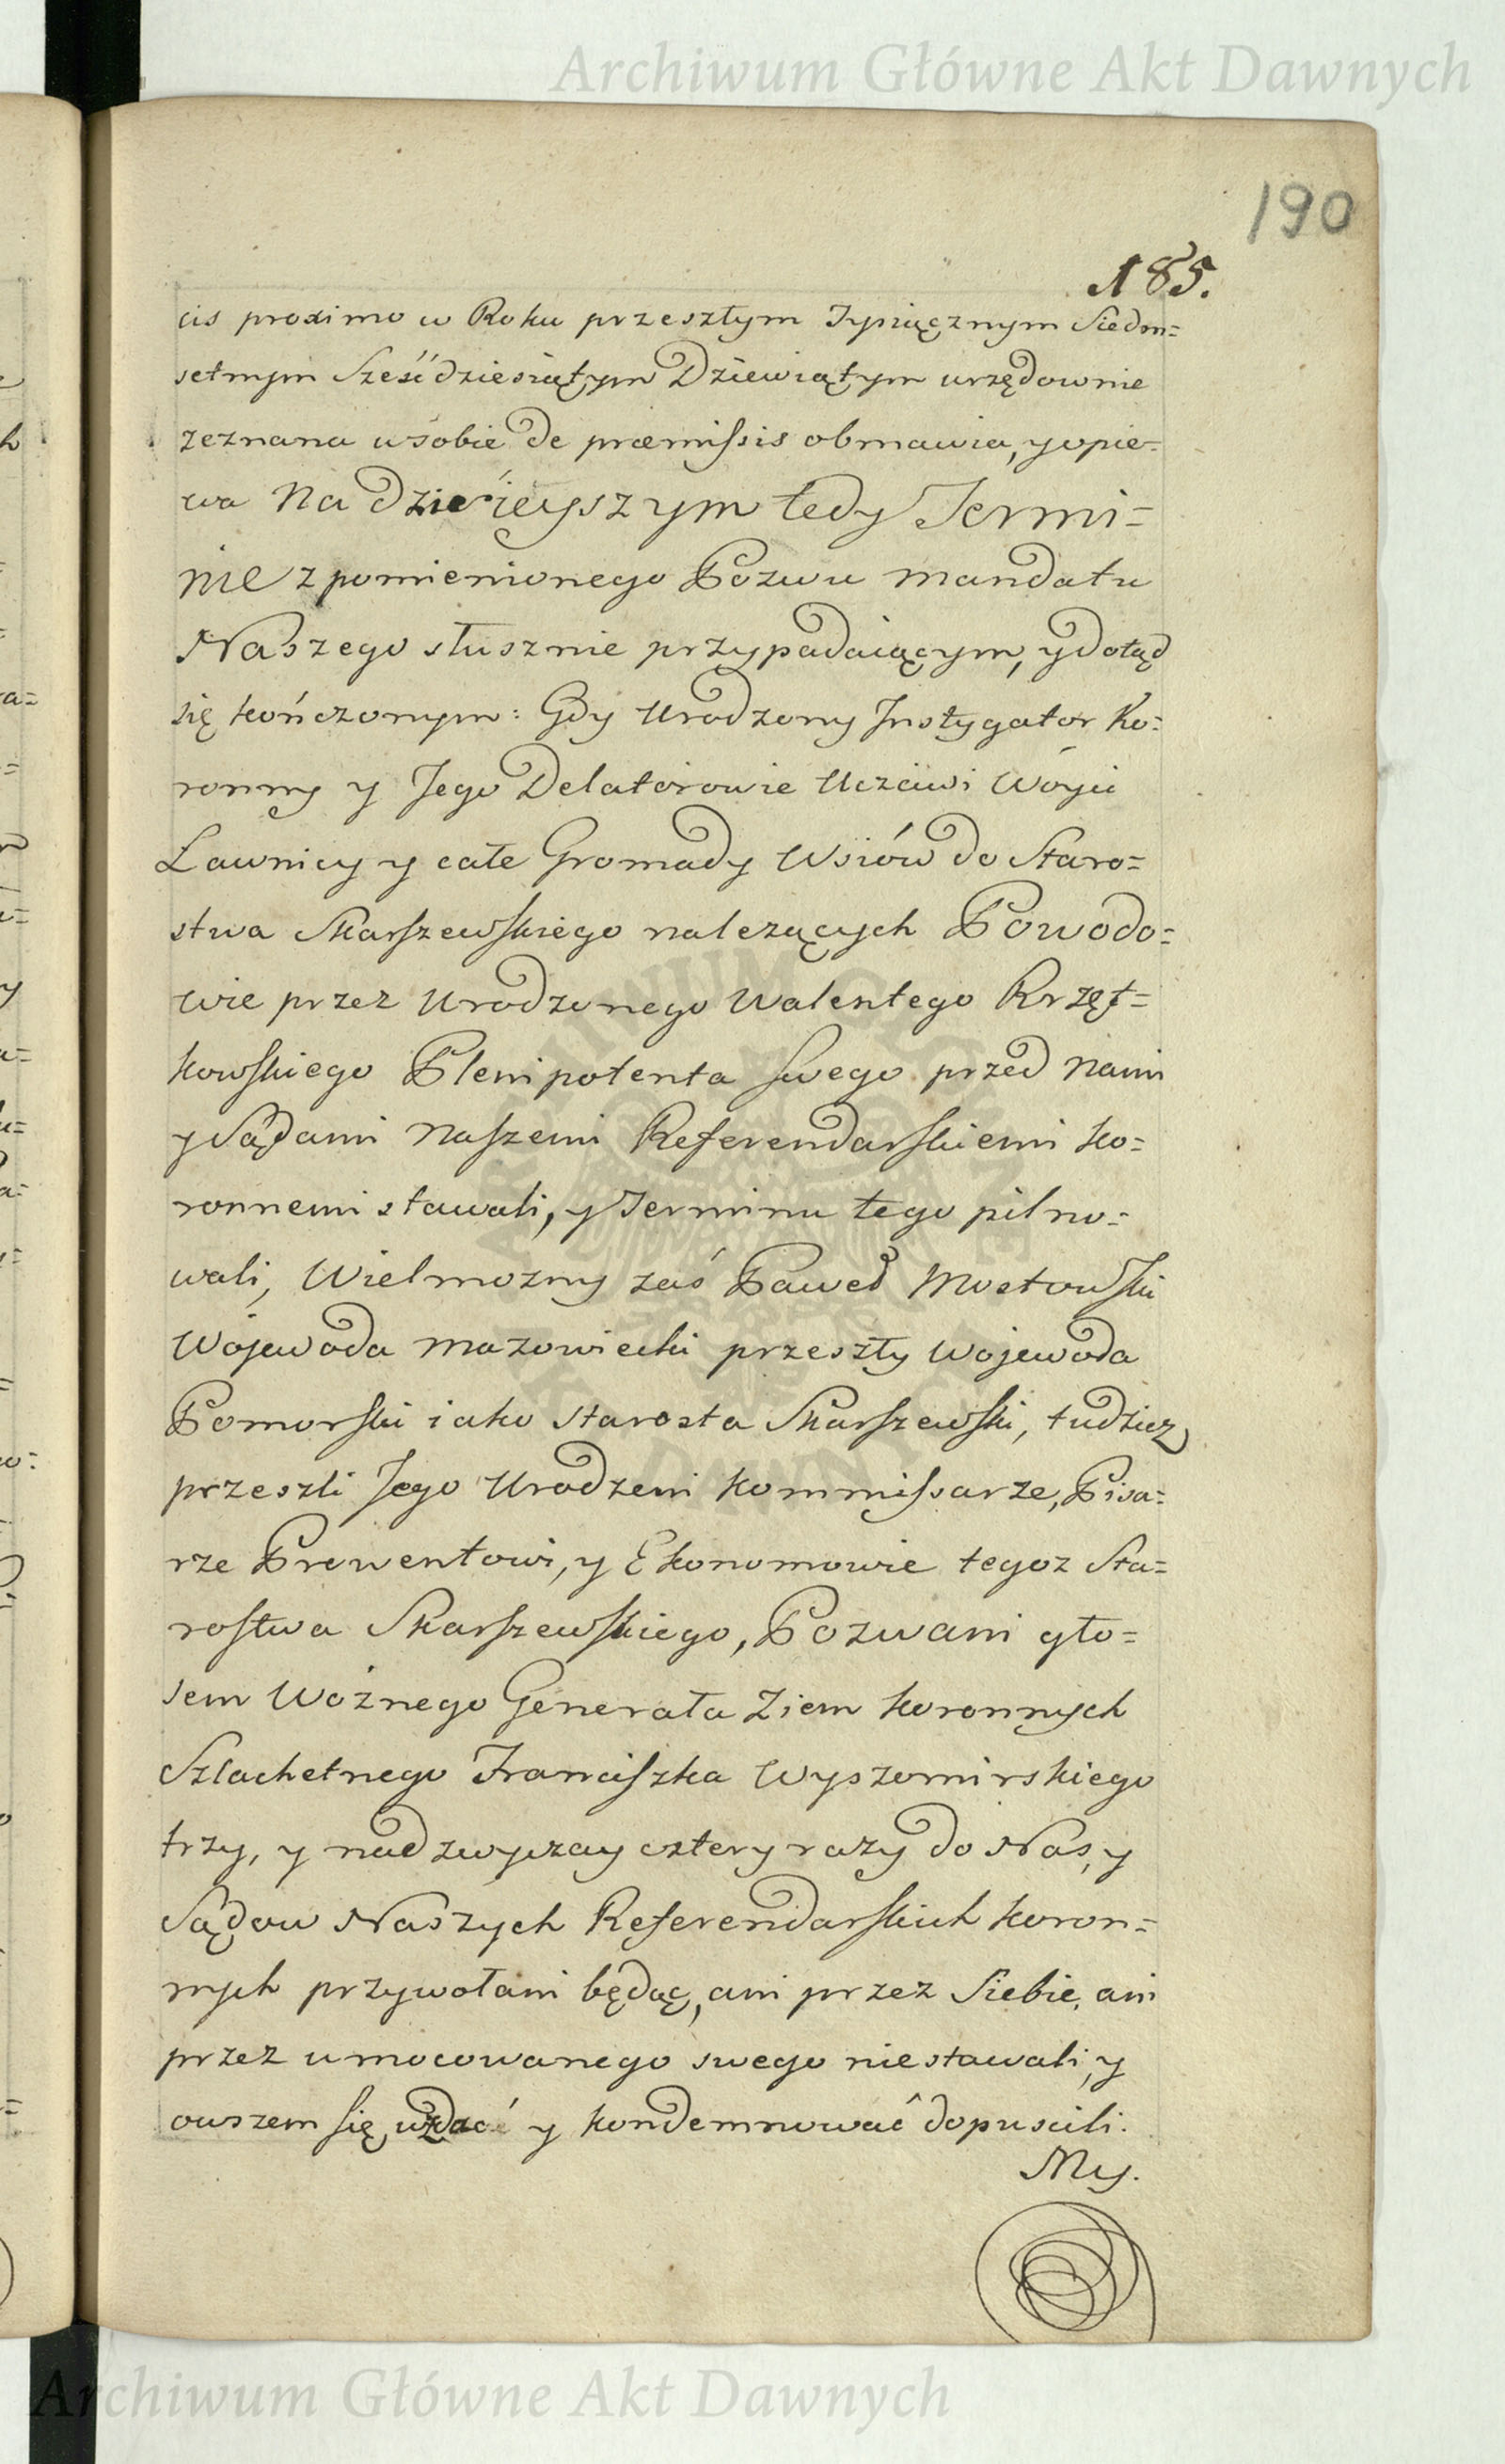 Archiwum Główne Akt Dawnych
190
185.
cis proximo w Roku przeszłym Tysiącznym Siedm=
setnym Sześćdziesiątym Dziewiątym urzędownie
zeznana w sobie de præmissis obmawia, y opie=
wa Na dzisieyszym tedy Termi=
nie z pomienionego Pozwu mandatu
Naszego słusznie przypadaiącym, y dotąd
się kończonym: Gdy Urodzony Instygator Ko=
ronny y Jego Delatorowie Uczciwi Wóyci
Ławnicy y całe Gromady Wsiów do Staro=
stwa Skarszewskiego należących Powodo=
wie przez Urodzonego Walentego Krzęt=
kowskiego Plenipotenta swego przed Nami
y Sądami Naszemi Referendarskiemi Ko=
ronnemi stawali, y Terminu tego pilno=
wali, Wielmożny zaś Paweł Mostowski
Wojewoda Mazowiecki przeszły Wojewoda
Pomorski iako Starosta Skarszewski, tudzież
przeszli Jego Urodzeni Kommissarze, Pisa=
rze Prowentowi, y Ekonomowie tegoż Sta=
rostwa Skarszewskiego, Pozwani gło=
sem Woźnego Generała Ziem Koronnych
Szlachetnego Franciszka Wyszomirskiego
trzy, y nadzwyczay cztery razy do Nas, y
Sądow Naszych Referendarskich Koron=
nych przywołani będąc, ani przez Siebie, ani
przez umocowanego swego niestawali, y
owszem się wzdać y kondemnować dopuscili.
My.
Archiwum Główne Akt Dawnych